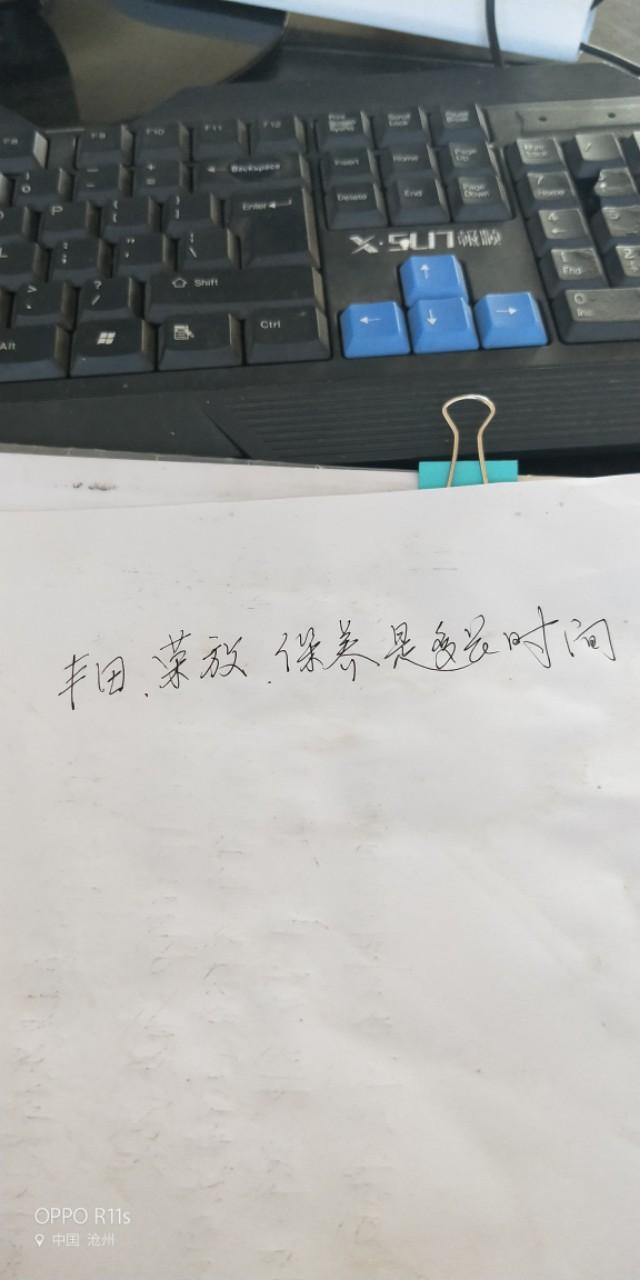 F9 F10 F11 F12 Print Screen SysRq Scroll Lock Pause Break
Backspace Insert Home Page Up Num Lock /
P Enter Delete End Page Down 7 Home
L 4 5
X·SUN
? / Shift 1 End
Alt Ctrl 0 Ins
丰田、荣放、保养是多长时间
OPPO R11s
中国 沧州